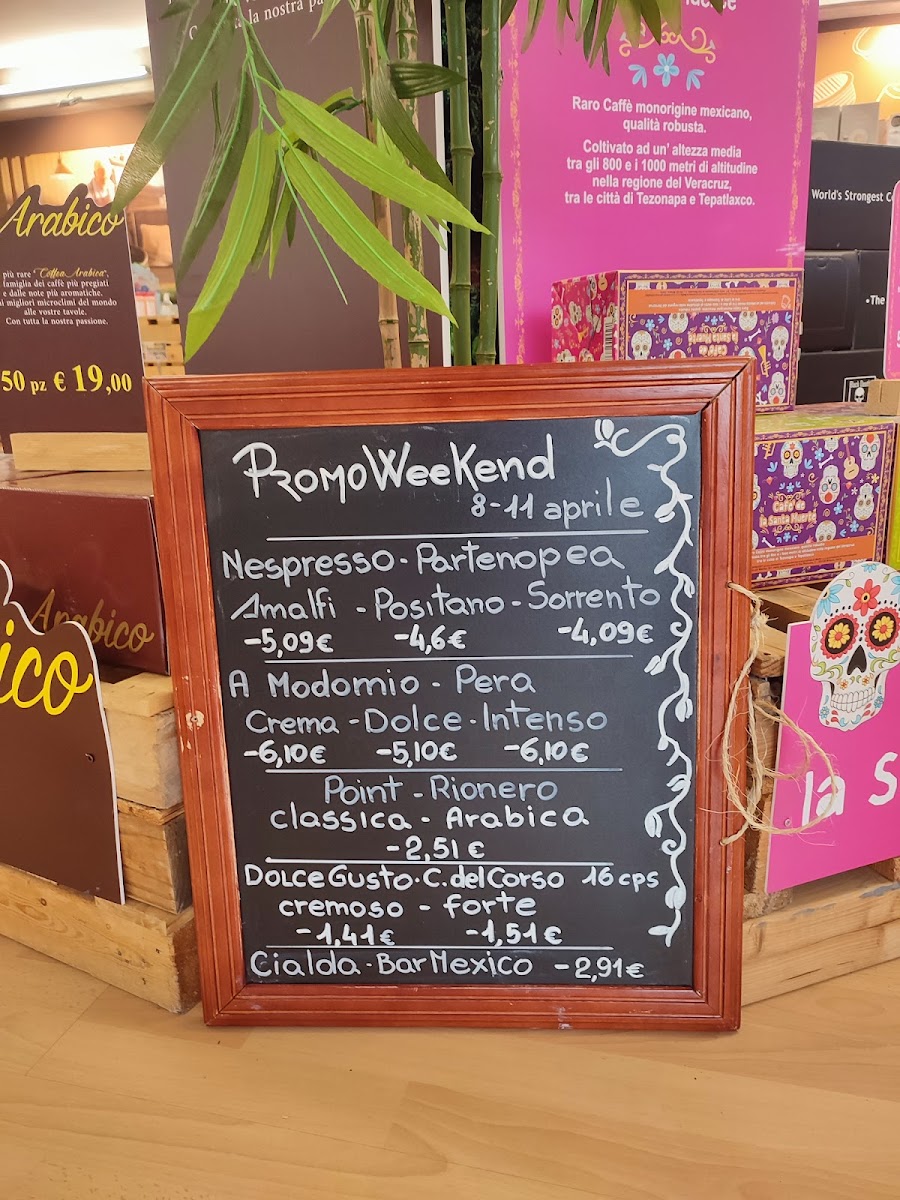 la nostra pa
Arabico
più rare "Coffea Arabica",
famiglia dei caffè più pregiati
e dalle note più aromatiche.
i migliori microclimi del mondo
alle vostre tavole.
Con tutta la nostra passione.
50 pz € 19,00
Raro Caffè monorigine mexicano,
qualità robusta.
Coltivato ad un' altezza media
tra gli 800 e i 1000 metri di altitudine
nella regione del Veracruz,
tra le città di Tezonapa e Tepatlaxco.
World's Strongest C
•The
Café de
la Santa Muerte
Café de
la Santa Muerte
Arabico
ico
la S
PromoWeekend
8-11 aprile
Nespresso - Partenopea
Amalfi - Positano - Sorrento
-5,09€ -4,6€ -4,09€
A Modomio - Pera
Crema - Dolce - Intenso
-6,10€ -5,10€ -6,10€
Point - Rionero
classica - Arabica
-2,51 €
Dolce Gusto - C. del Corso 16 cps
cremoso - forte
-1,41€ -1,51€
Cialda - Bar Mexico -2,91€